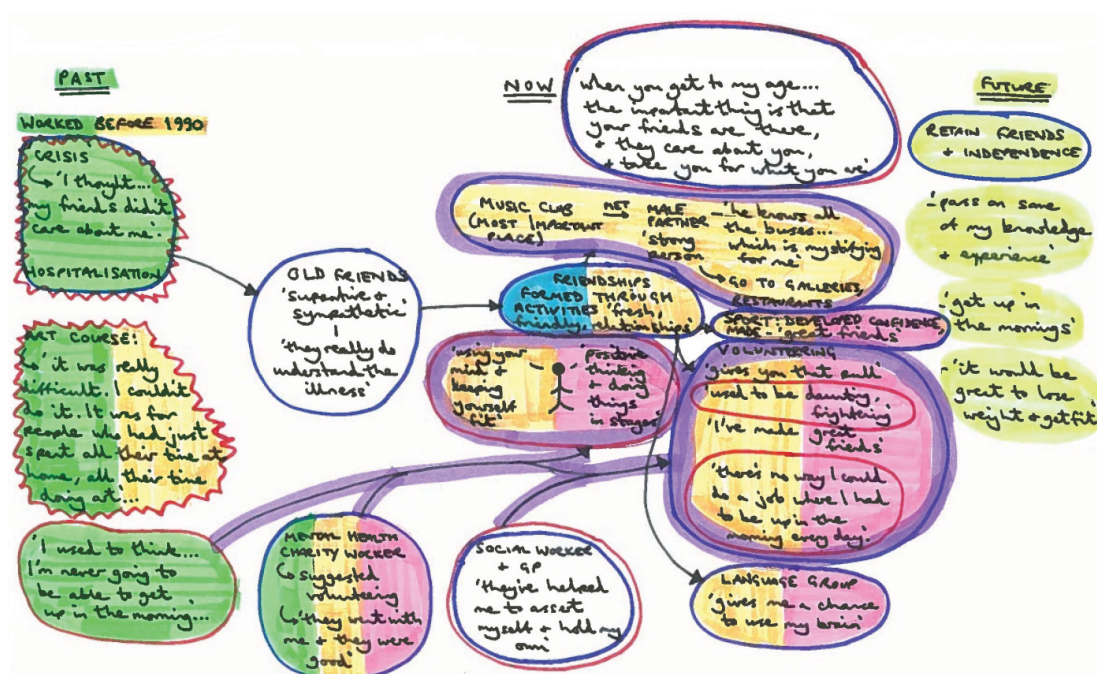 PAST
WORKED BEFORE 1990
CRISIS
↳ 'I thought...
my friends didn't
care about me'.
HOSPITALISATION
ART COURSE:
↳ 'it was really
difficult. I couldn't
do it. It was for
people who had just
spent all their time at
home, all their time
doing art'...
'I used to think...
I'm never going to
be able to get
up in the morning...
OLD FRIENDS
'supportive &
sympathetic'
'they really do
understand the
illness'
MENTAL HEALTH
CHARITY WORKER
↳ suggested
volunteering
↳ 'they went with
me & they were
good'
SOCIAL WORKER
& GP
'they've helped
me to asset
myself & hold my
own'
NOW
'when you get to my age...
the important thing is that
your friends are there,
& they care about you,
& take you for what you are'
MUSIC CLUB
(MOST IMPORTANT
PLACE)
MET →
MALE
PARTNER
'strong
person
– 'he knows all
the buses...
which is mystifying
for me'
↳ GO TO GALLERIES,
RESTAURANTS
FRIENDSHIPS
FORMED THROUGH
ACTIVITIES 'fresh,
friendly, relationships'
SPORT: DEVELOPED CONFIDENCE,
MADE friends'
'using your
mind &
keeping
yourself
fit'
'positive
thinking
& doing
things
in stages'
VOLUNTEERING
'gives you that pull'
used to be daunting,
frightening
'I've made great
friends'
'there's no way I could
do a job where I had
to be up in the
morning every day.'
LANGUAGE GROUP
'gives me a chance
to use my brain'
FUTURE
RETAIN FRIENDS
& INDEPENDENCE
– 'pass on some
of my knowledge
& experience'
'get up' in
the mornings'
– 'it would be
great to lose
weight & get fit'